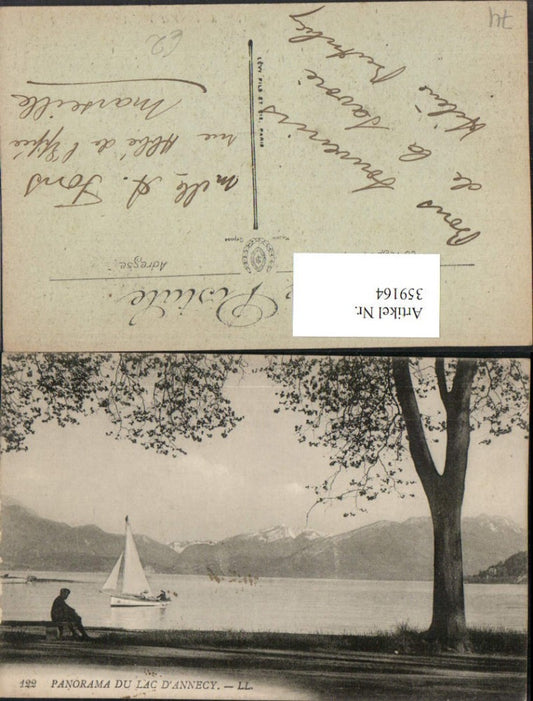 74
62
Carte Postale
Adresse
Marque Déposée
LÉVY FILS ET CIE, PARIS
Bons souvenirs
de la Savoie
Mlle A. Fons
rue Abbé de l'Epée
Marseille
Artikel Nr.
359164
122 PANORAMA DU LAC D'ANNECY. — LL.